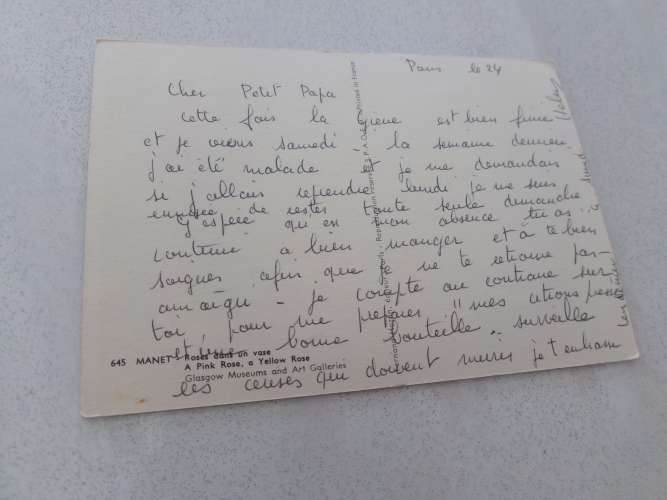 Paris le 24
Cher Petit Papa
Cette fois la grève est bien finie
et je viens samedi la semaine dernière
j'ai été malade et je me demandais
si j'allais reprendre lundi je me suis
ennuyée de rester toute seule dimanche
J'espère qu'en mon absence tu as
continué a bien manger et à te bien
soigner afin que je ne te retrouve pas
amaigri - je compte au contraire sur
toi, pour me préparer "mes citrons pressés
et une bonne bouteille - surveille
les cerises qui doivent murir je t'embrasse
645 MANET - Roses dans un vase
A Pink Rose, a Yellow Rose
Glasgow Museums and Art Galleries
Printed in France